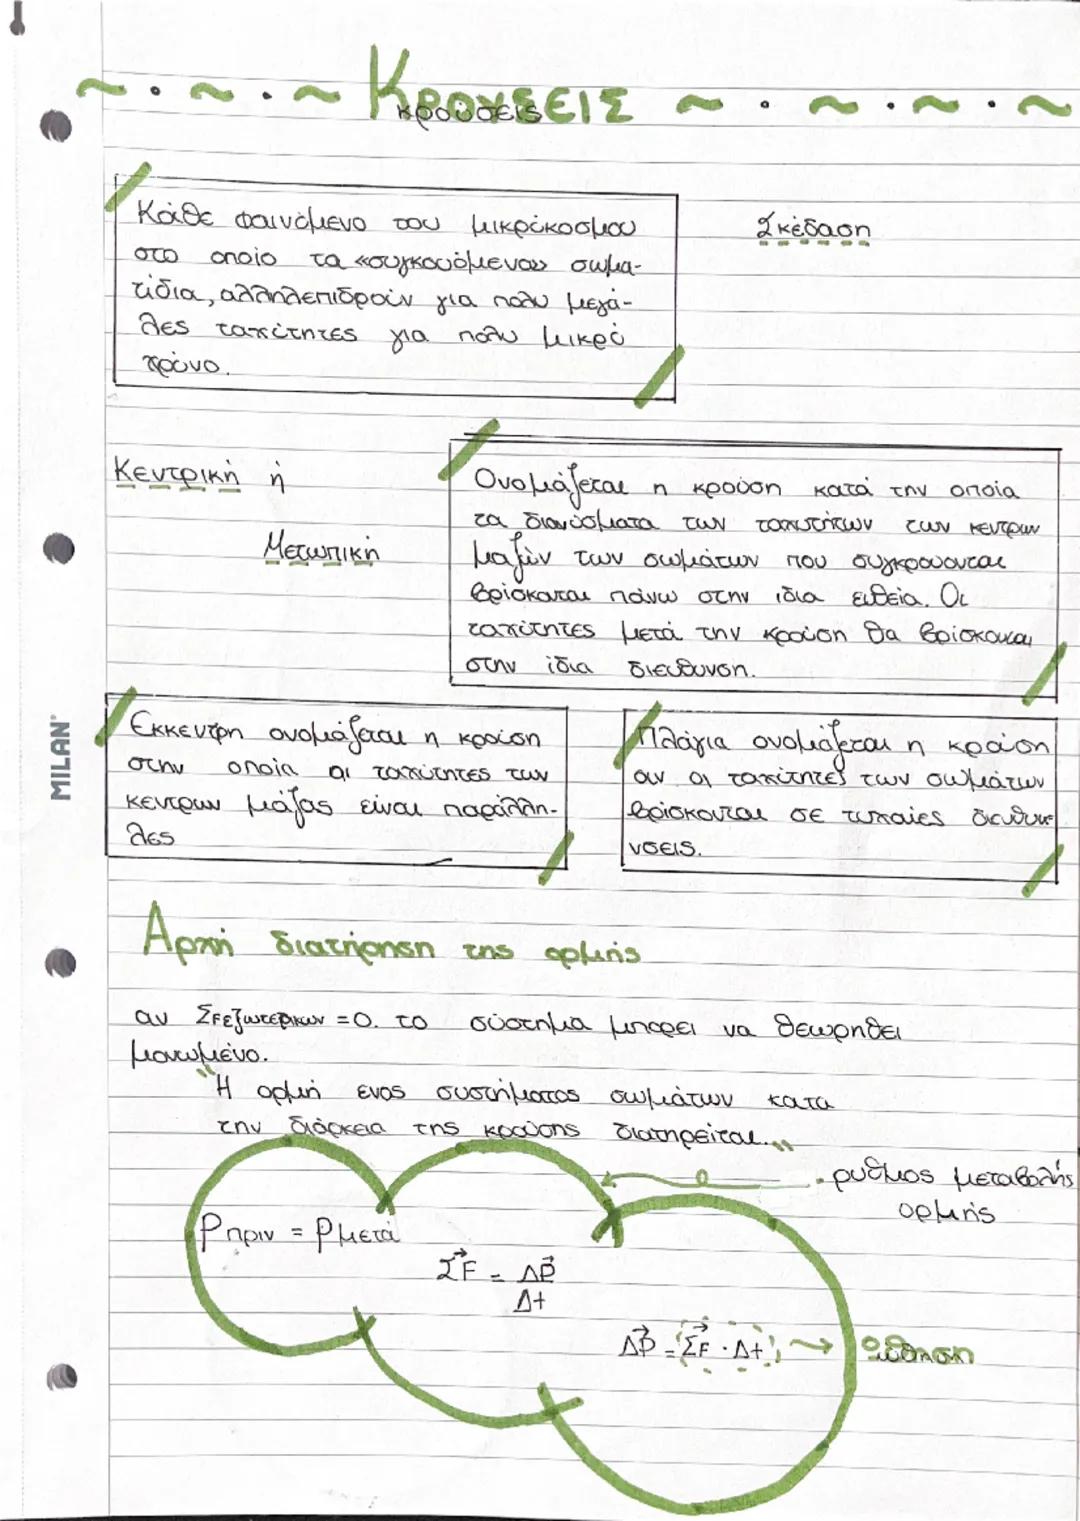 ΚΡΟΥΣΕΙΣ
κρούσεις
Κάθε φαινόμενο του μικρόκοσμου
στο οποίο τα «συγκουόμενα» σωμα-
τίδια, αλληλεπιδρούν για πολυ μεγά-
λες ταχύτητες για πολυ μικρό
χρόνο.
Σκέδαση
Κεντρική ή
Μετωπική
Ονομάζεται η κρούση κατά την οποία
τα διανύσματα των ταχυτήτων των κεντρων
μαζών των σωμάτων που συγκρουονται
βρίσκαται πάνω στην ίδια ευθεία. Οι
ταχύτητες μετά την κρούση θα βρίσκονται
στην ίδια διευθυνση.
Εκκεντρη ονομάζεται η κρούση
στην οποία οι ταχύτητες των
κεντρων μάζας είναι παράλλη-
λες
Πλάγια ονομάζεται η κρούση
αν οι ταχύτητες των σωμάτων
βρίσκονται σε τυχαίες διευθυν
νσεις.
MILAN
Αρχή διατήρηση της ορμής
αν ΣFεξωτερικων = 0. το σύστημα μπορει να θεωρηθει
μονωμένο.
"Η ορμή ενος συστήματος σωμάτων κατα
την διάρκεια της κρούσης διατηρείται."
ρυθμος μεταβολής
ορμής
Pπριν = Pμετά
ΣF = ΔP
Δt
ΔP = ΣF · Δt → ώθηση